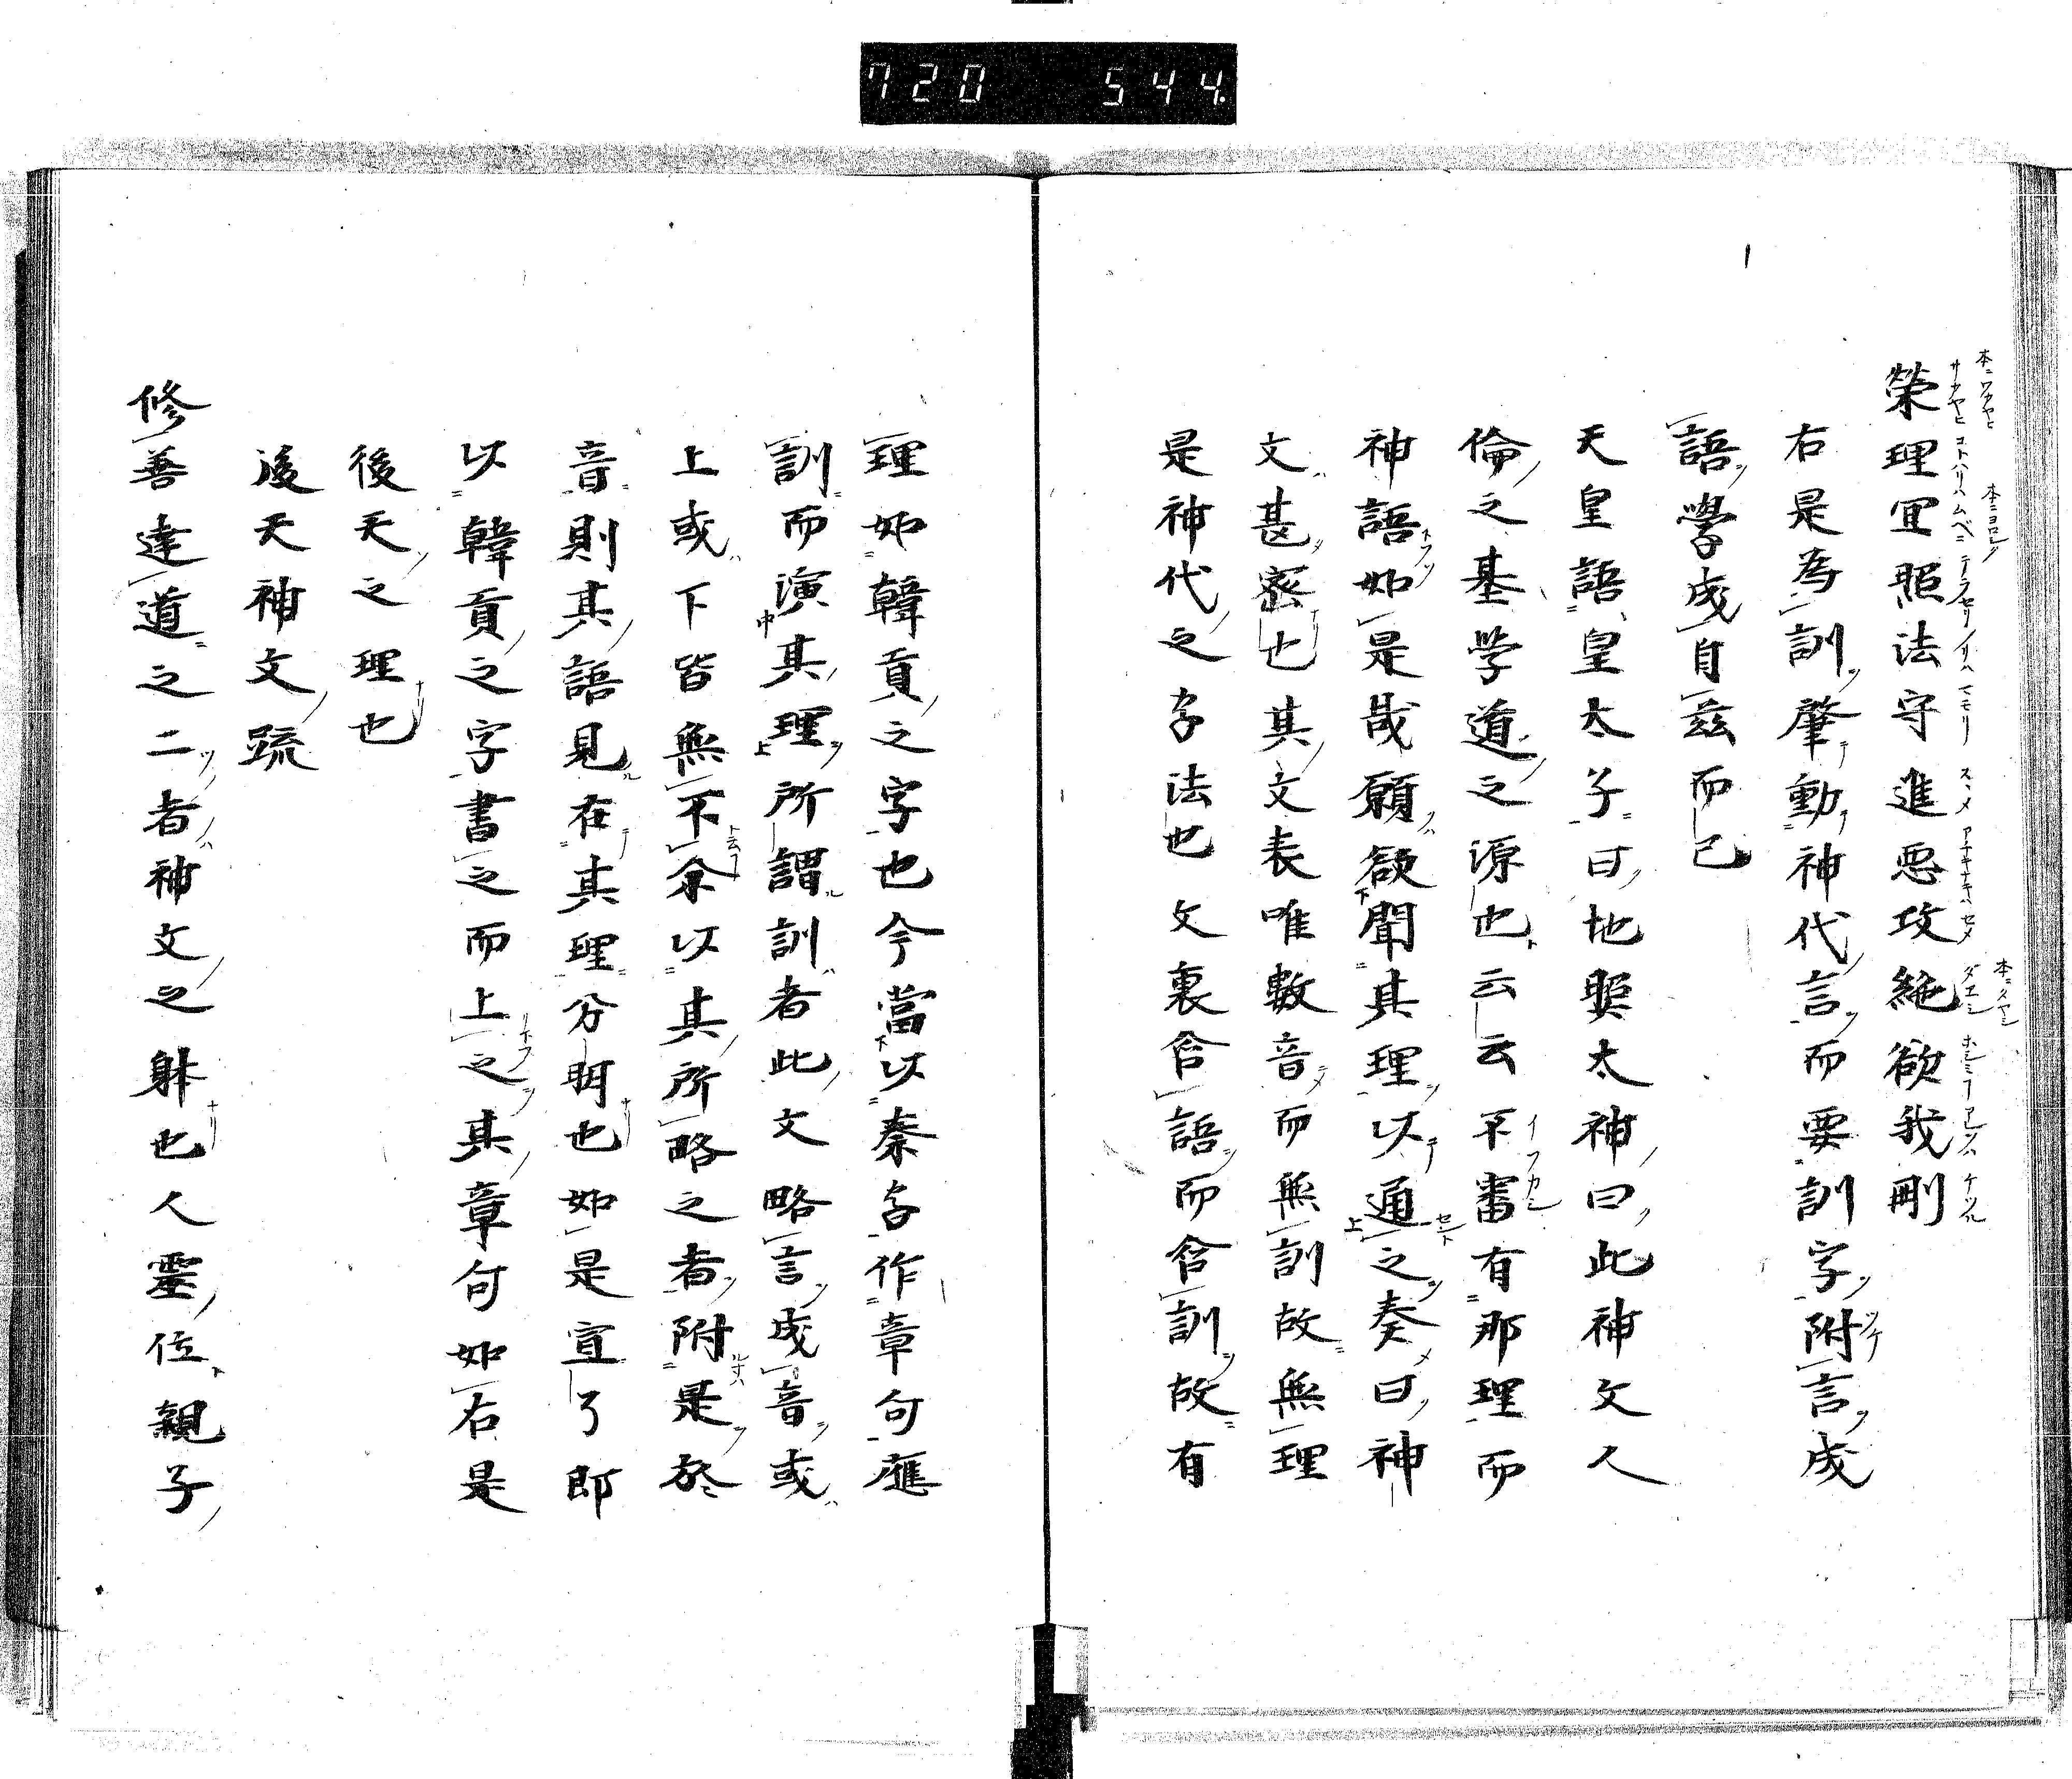 720 544.
榮理宜照法守進惡攻絶欲我剛
右是為訓肇動神代言而要訓字附言成
語學成自茲而已
天皇語皇太子曰地照太神曰此神文人
倫之基学道之源也云云不審有那理而
神語如是哉願欲聞其理以通之奏曰神
文甚密也其文表唯數音而無訓故無理
是神代之字法也文裏含語而含訓故有
理如韓貢之字也今當以秦字作章句應
訓而演其理所謂訓者此文略言成音或
上或下皆無不余以其所略之者附是於
音則其語見在其理分明也如是宣了即
以韓貢之字書之而上之其章句如右是
後天之理也
後天神文疏
修善達道之二者神文之躰也人靈位親子